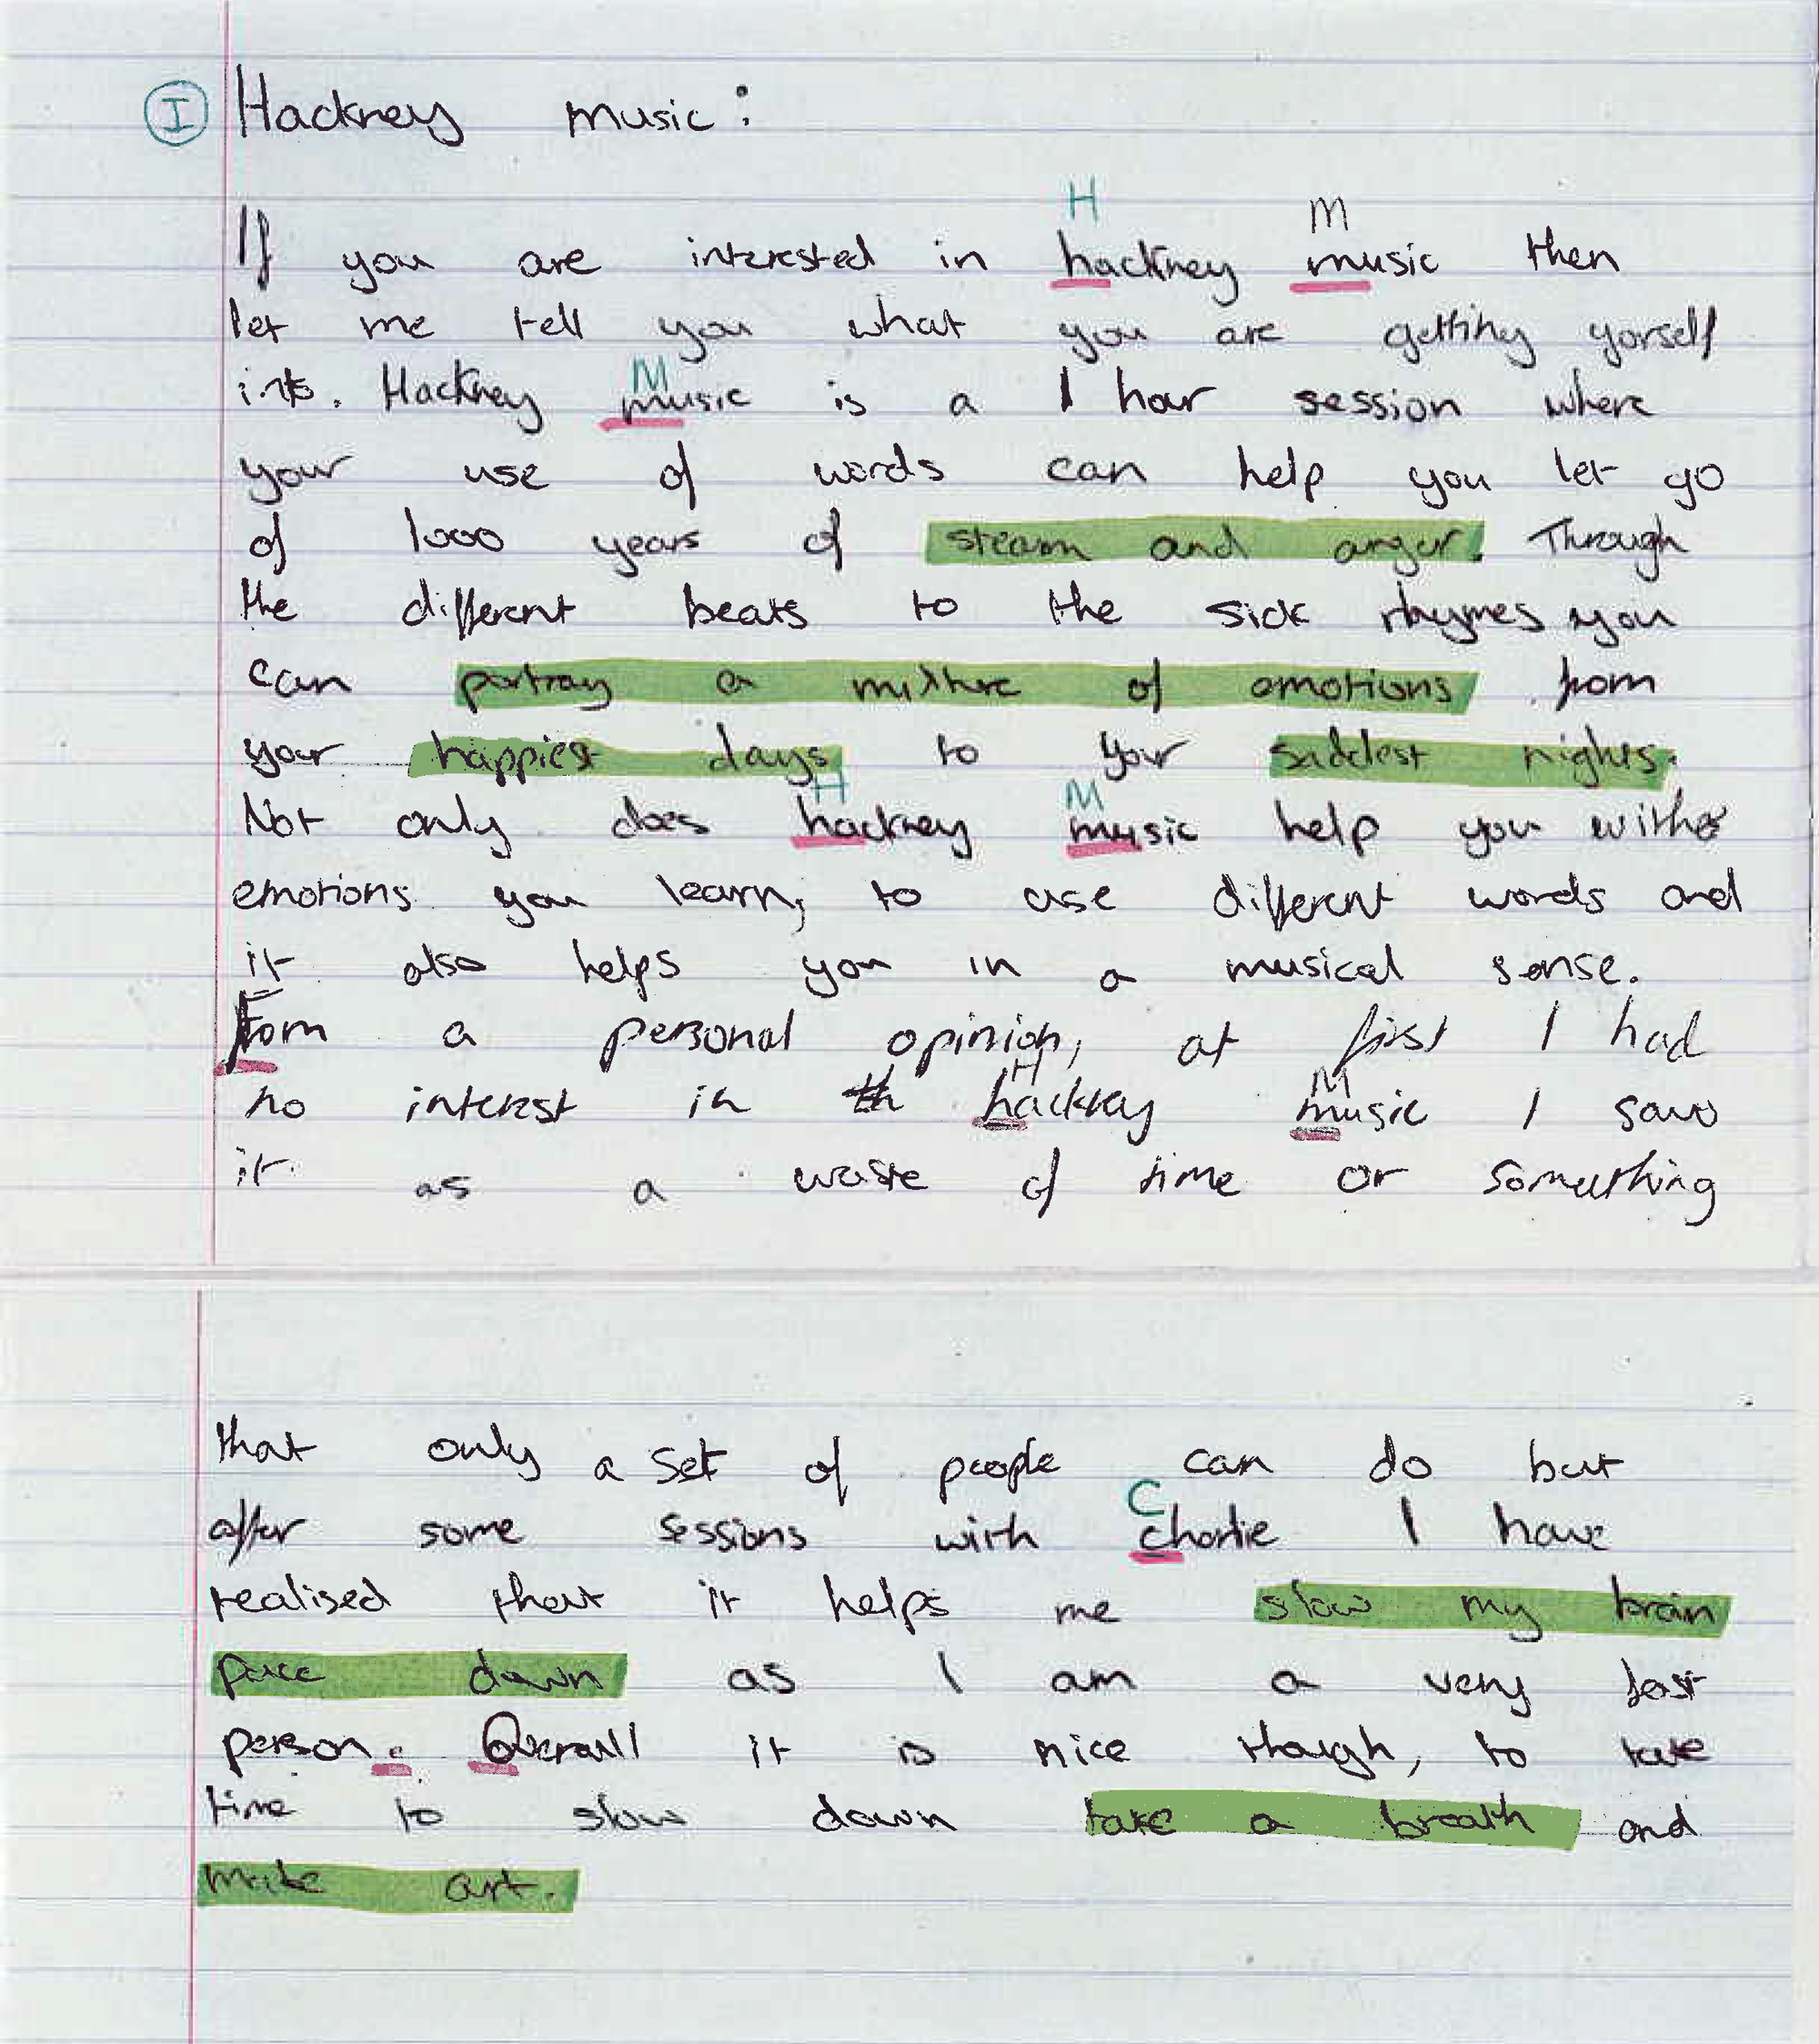 I Hackney music:
H M
If you are interested in hackney music then
let me tell you what you are getting yorself
M
into. Hackney music is a 1 hour session where
your use of words can help you let go
of 1000 years of steam and anger. Through
the different beats to the sick rhymes you
can portray a mixture of emotions from
your happiest days to your saddest nights.
H M
Not only does hackney music help you with
emotions you learn, to use different words and
it also helps you in a musical sense.
From a personal opinion, at first I had
H M
no interest in th hackney music I saw
it as a waste of time or something
that only a set of people can do but
C
after some sessions with charlie I have
realised that it helps me slow my brain
pace down as I am a very fast
person. Overall it is nice though, to take
time to slow down take a breath and
make art.